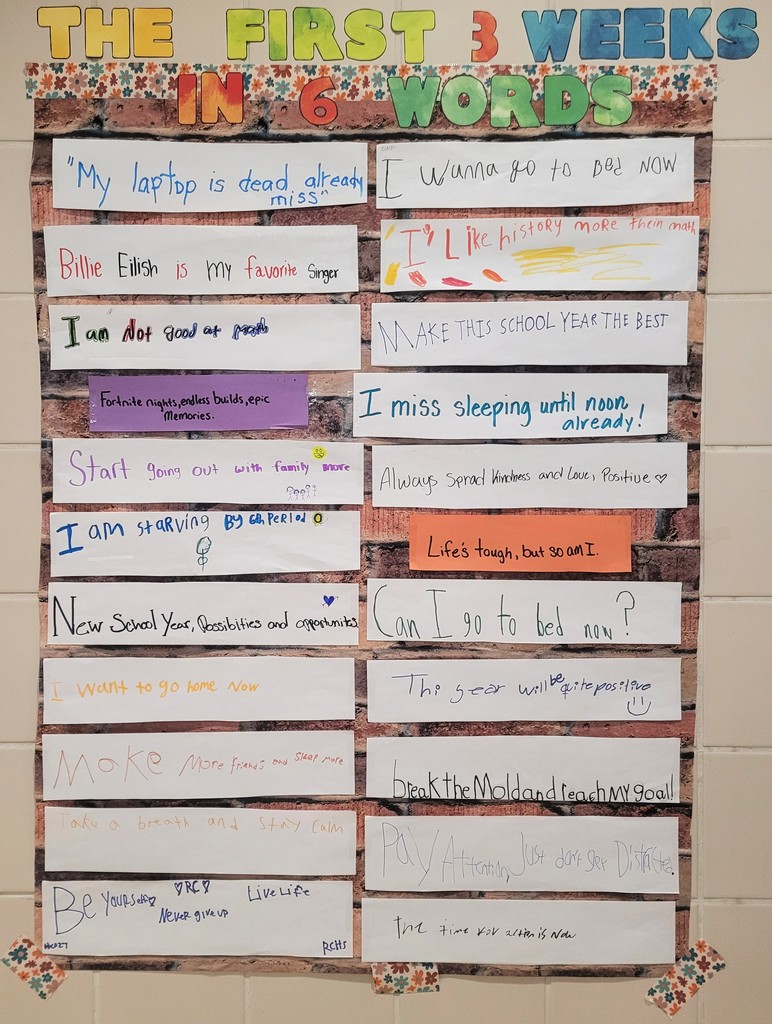 THE FIRST 3 WEEKS
IN 6 WORDS
"My laptop is dead already
miss"
I wanna go to bed NOW
Billie Eilish is my favorite singer
I' Like history more thein math
I am Not good at math
MAKE THIS SCHOOL YEAR THE BEST
Fortnite nights, endless builds, epic
Memories.
I miss sleeping until noon
already!
Start going out with family more
Always Sprad Kindness and Love, Positive ♡
I am starving By 6th Period
Life's tough, but so am I.
New School Year, Possiblties and opportunites
Can I go to bed now?
I want to go home Now
Thi year will be quite positive
Make More friends and sleep more
break the Mold and reach MY goal!
Take a breath and stay calm
Pay Attention, Just don't get Distracted.
Be yourself♡ ♡RC♡ Live Life
Never give up
RCHS
the time for action is Now